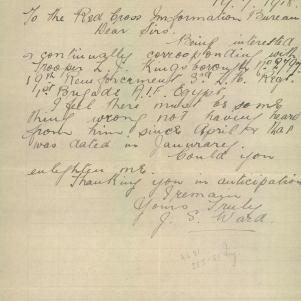 19.7.1918.
To the Red Cross Information Bureau
Dear Sirs.
Being interested
& continually corresponding with
Trooper L. J. Kingsborough
19th Reinforcement 3rd L.H. Regt.
1st Brigade A.I.F. Egypt.
I feel there must be some
thing wrong not having heard
from him since April & that
was dated in Janurary.
Could you
enlighten me.
Thanking you in anticipation
I remain
Yours Truly
J. S. Ward.